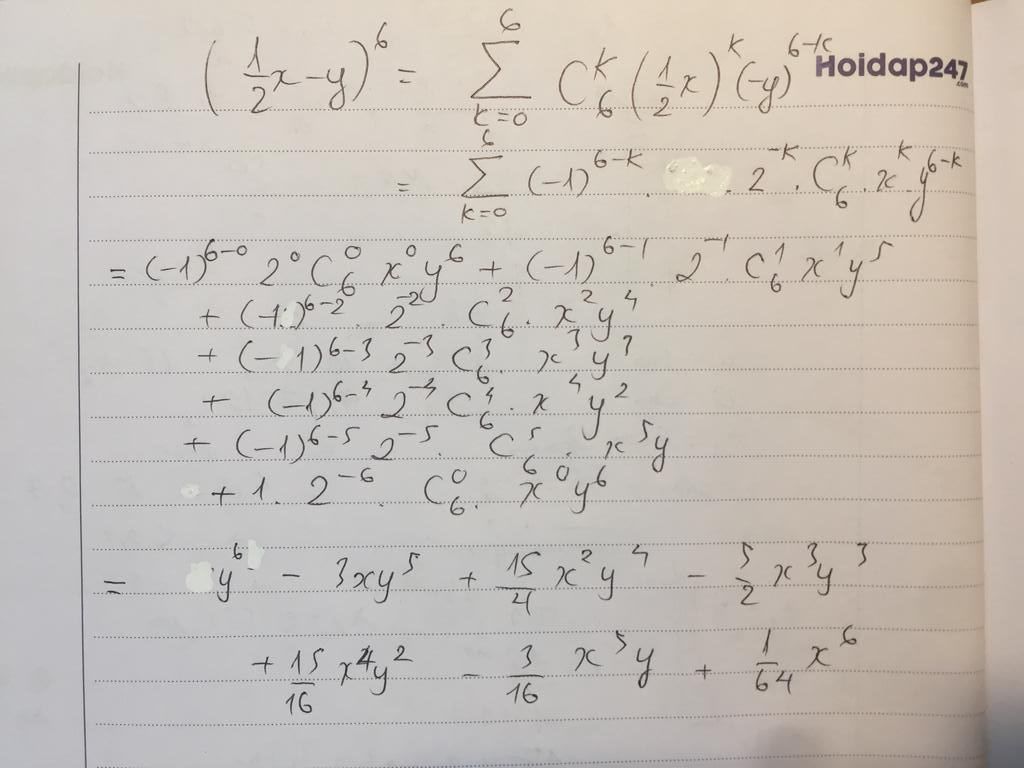 (1/2 x - y)^6 = ∑_{k=0}^{6} C_6^k (1/2 x)^k (-y)^{6-k}
Hoidap247.com
= ∑_{k=0}^{6} (-1)^{6-k} . . 2^{-k} . C_6^k . x^k y^{6-k}
= (-1)^{6-0} 2^0 C_6^0 x^0 y^6 + (-1)^{6-1} . 2^{-1} . C_6^1 x^1 y^5
+ (-1)^{6-2} . 2^{-2} . C_6^2 . x^2 y^4
+ (-1)^{6-3} 2^{-3} C_6^3 . x^3 y^3
+ (-1)^{6-4} 2^{-4} C_6^4 . x^4 y^2
+ (-1)^{6-5} 2^{-5} . C_6^5 . x^5 y
+ 1 . 2^{-6} . C_6^0 . x^0 y^6
= y^6 - 3xy^5 + 15/4 x^2 y^4 - 5/2 x^3 y^3
+ 15/16 x^4 y^2 - 3/16 x^5 y + 1/64 x^6